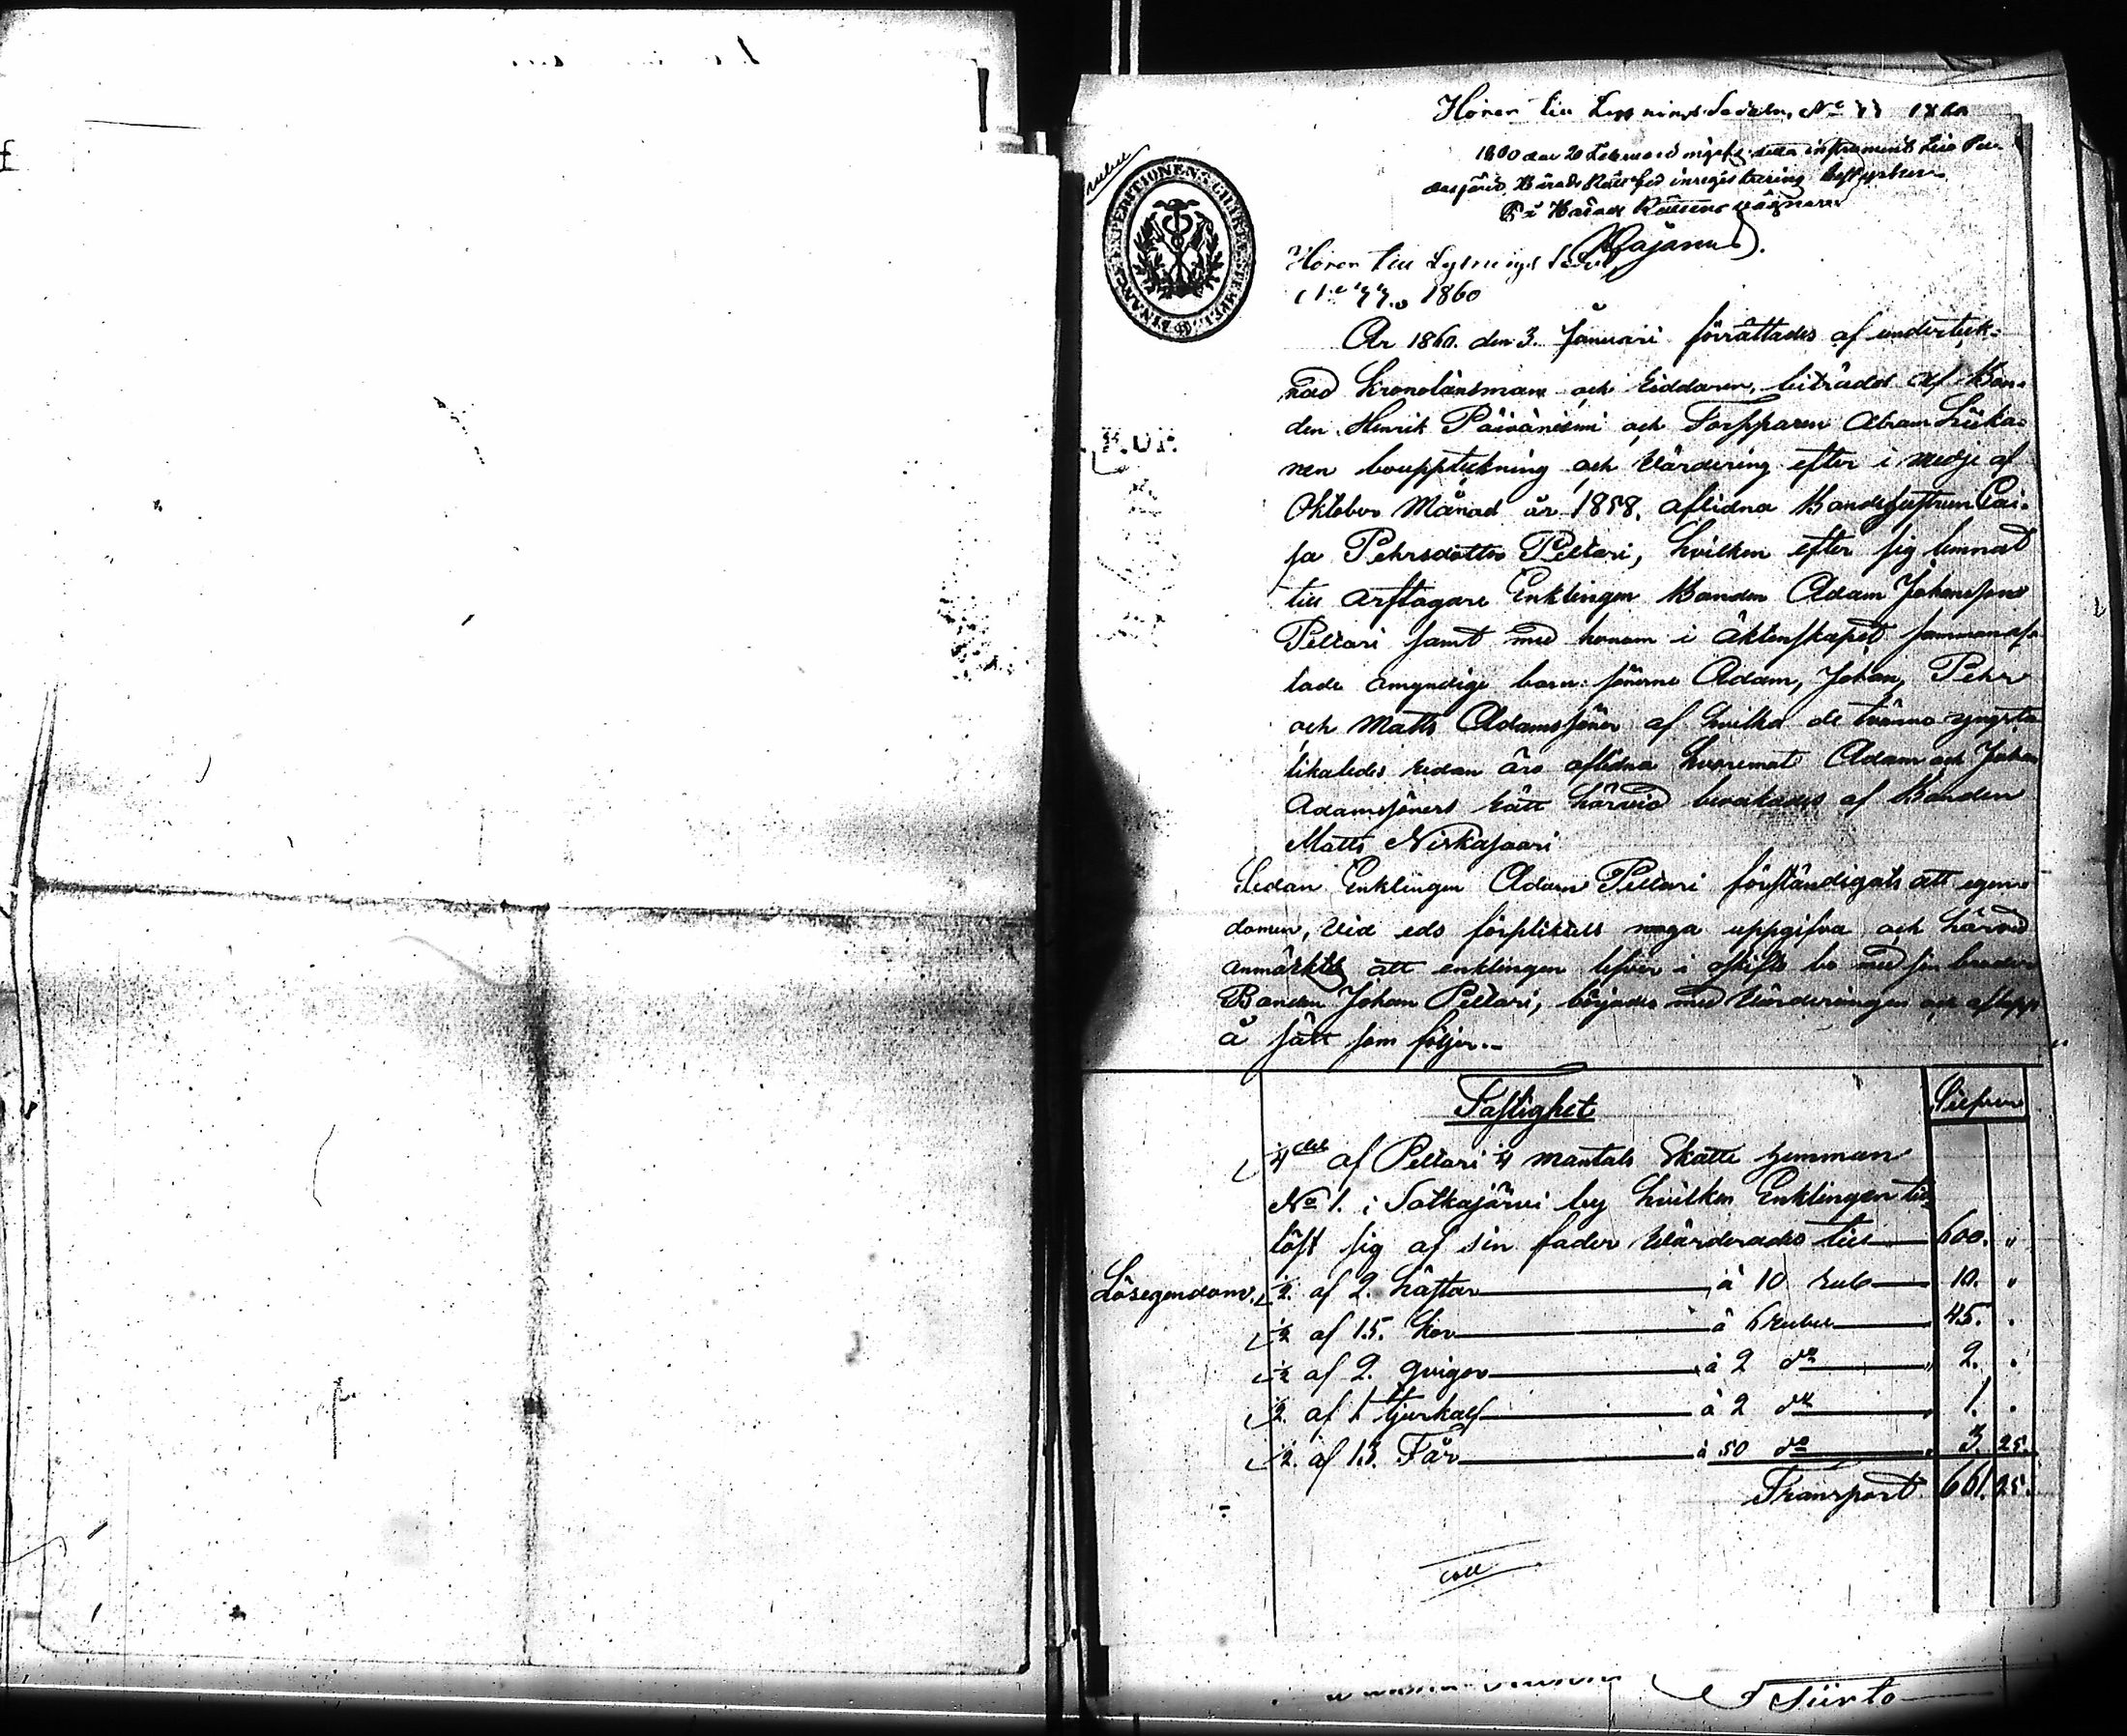 Hörer till Lysnings Sedeln, No 77 1860
1860 den 20 Februari ingafs detta instrument till Pu-
dasjärvi Härads Rätt hvars inregistrering bestyrkes
På Härads Rättens vägnar
Cajanus
Hörer till Lysnings Sedel
No 77. 1860
FINANCE EXPEDITIONENS CHARTÆ STEMPEL
År 1860. den 3. Januari förrättades af underteck-
nad Kronolänsman och Riddaren, biträdd af Bon-
den Henrik Päiväniemi och Torpparen Abram Liika-
nen bouppteckning och Värdering efter i medje af
Oktober Månad år 1858. aflidna Bondehustrun Cai-
sa Pehrsdotter Peltari, hvilken efter sig lemnat
till arftagare Enklingen Bonden Adam Johansson
Peltari samt med honom i äktenskapet sammanaf-
lade omyndige barn: sönerne Adam, Johan, Pehr
och Matts Adamssöner af hvilka de tvänne yngsta
likaledes redan äro aflidna hvaremot Adam och Johan
Adamssöners rätt härvid bevakades af Bonden
Matts Nirkasaari
Sedan Enklingen Adam Peltari förständigats att egen-
domen, vid eds förpliktelse noga uppgifva och härvid
anmärktes att enklingen lefver i oskifto bo med sin broder
Bonden Johan Peltari, börjades med Värderingen och aflopp
å sätt som följer.-
Fastighet Silfver
1/4 del af Peltari 1/4 mantals Skatte hemman
No 1. i Sotkajärvi by hvilken Enklingen till-
löst sig af sin fader Värderades till 600. "
Lösegendom. 1/2. af 2. hästar à 10 rub 10. "
1/2 af 15. kor à 6 rubel 45. "
1/2 af 2. qvigor à 2 do 2. "
1/2. af 1 tjurkalf à 2 do 1. "
1/2. af 13. Får à 50 do 3. 25.
Transport 661. 25.